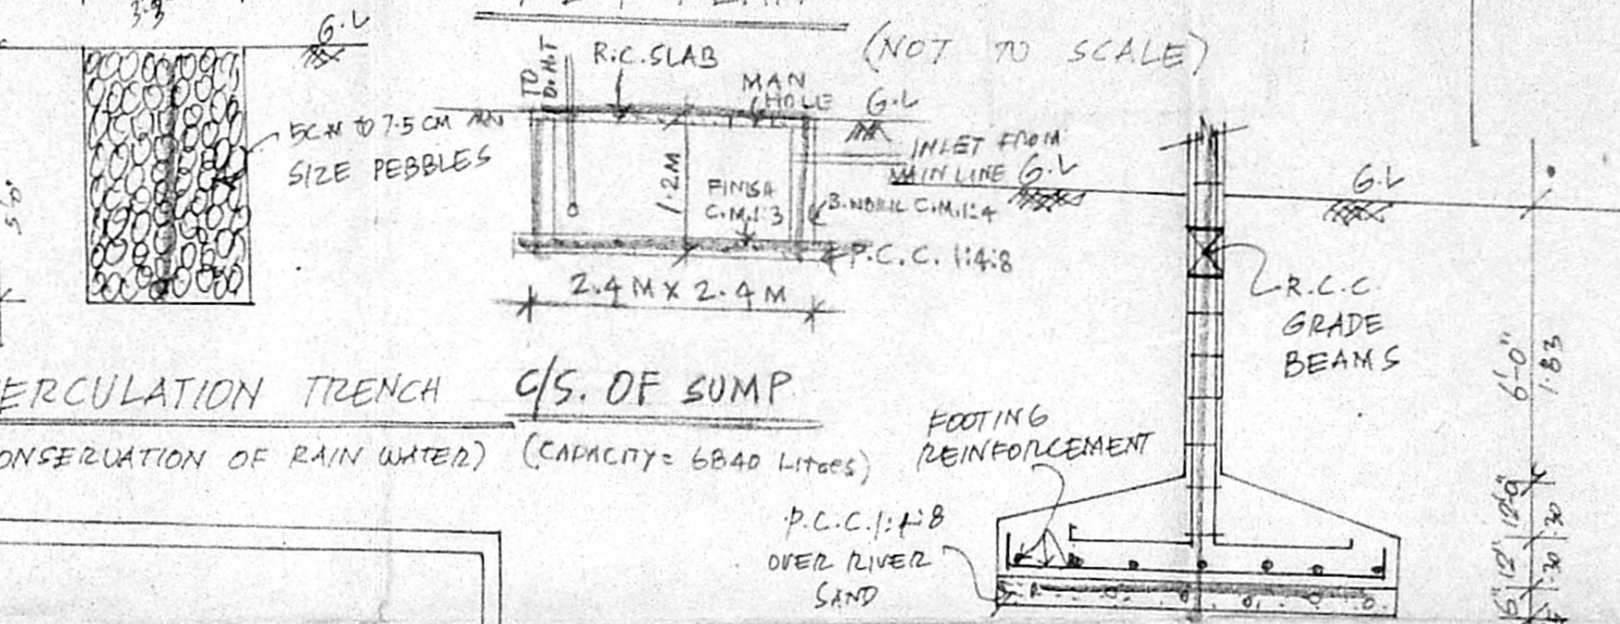 3'.3"
G.L
5CM TO 7.5 CM
SIZE PEBBLES
5'.0"
ERCULATION TRENCH
ONSERVATION OF RAIN WATER)
(NOT TO SCALE)
TO
D.H.T
R.C. SLAB
MAN
HOLE
G.L
INLET FROM
MAIN LINE
1.2M
FINISH
C.M.1:3
C.M.1:4
P.C.C. 1:4:8
2.4 M X 2.4 M
C/S. OF SUMP
(CAPACITY = 6840 LITRES)
G.L
G.L
R.C.C.
GRADE
BEAMS
6'-0"
1.83
FOOTING
REINFORCEMENT
P.C.C.1:4:8
OVER RIVER
SAND
.30
12"
.30
6"